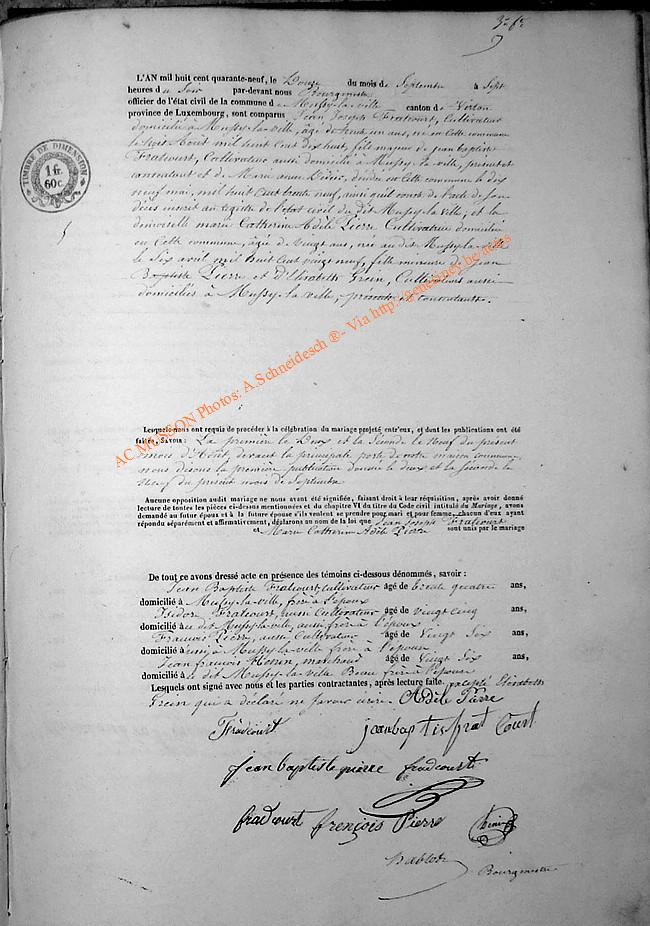 L'AN mil huit cent quarante-neuf, le Douze du mois de Septembre à Sept
heures du Soir par-devant nous Bourgmestre
officier de l'état civil de la commune de Mussy-la-ville canton de Virton
province de Luxembourg, sont comparus Jean Joseph Fratcourt, Cultivateur
domicilié à Mussy-la-ville, âgé de trente un ans, né en Cette commune
le trois Août mil huit Cent dix huit, fils majeur de jean baptiste
Fratcourt, Cultivateur aussi domicilié à Mussy-la-ville, présent et
consentant et de Marie anne décédée en Cette commune le dix
neuf mai, mil huit Cent trente neuf, ainsi qu'il conste de l'acte de son
décès inscrit au registre de l'état civil du dit Mussy-la-ville, et la
demoiselle marie Catherine Adèle Pierre Cultivatrice domiciliée
en Cette commune, âgée de vingt ans, née au dit Mussy-la-ville
le Six avril mil huit Cent vingt neuf, fille mineure de Jean
Baptiste Pierre et d'Elisabeth Grein, Cultivateurs aussi
domiciliés à Mussy-la-ville, présents et consentants.
TIMBRE DE DIMENSION
1 fr.
60c.
Lesquels nous ont requis de procéder à la célébration du mariage projeté entr'eux, et dont les publications ont été
faites, SAVOIR: La première le Deux et la Seconde le Neuf du présent
mois d'Août, devant la principale porte de notre maison commune
nous disons la première publication donnée le deux et la seconde le
Neuf du présent mois de Septembre
Aucune opposition audit mariage ne nous ayant été signifiée, faisant droit à leur réquisition, après avoir donné
lecture de toutes les pièces ci-dessus mentionnées et du chapitre VI du titre du Code civil intitulé du Mariage, avons
demandé au futur époux et à la future épouse s'ils veulent se prendre pour mari et pour femme, chacun d'eux ayant
répondu séparément et affirmativement, déclarons au nom de la loi que Jean Joseph Fratcourt
et Marie Catherine Adèle Pierre sont unis par le mariage
De tout ce avons dressé acte en présence des témoins ci-dessous dénommés, savoir:
Jean Baptiste Fratcourt, Cultivateur âgé de trente quatre ans,
domicilié à Mussy-la-ville, frère à l'époux
Isidore Fratcourt, aussi Cultivateur âgé de vingt cinq ans,
domicilié au dit Mussy-la-ville, aussi frère à l'époux
François Pierre, aussi Cultivateur âgé de Vingt Six ans,
domicilié aussi à Mussy-la-ville frère à l'épouse
Jean françois marchand âgé de Vingt Six ans,
domicilié au dit Mussy-la-ville Beau frère à l'épouse
Lesquels ont signé avec nous et les parties contractantes, après lecture faite. excepté Elisabeth
Grein qui a déclaré ne savoir écrire. Adèle Pierre
Fradcourt jeanbaptist frat Court
Jean baptiste pierre fradcourt
fradcourt françois Pierre
Bourgmestre
AC MUSSON Photos: A.Schneidesch ®- Via http://geneanney.be/actes